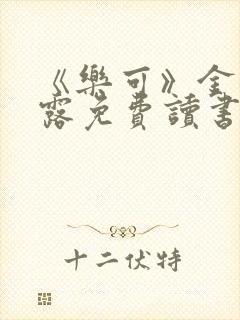 《樂可》金
露免費讀書
十二伏特